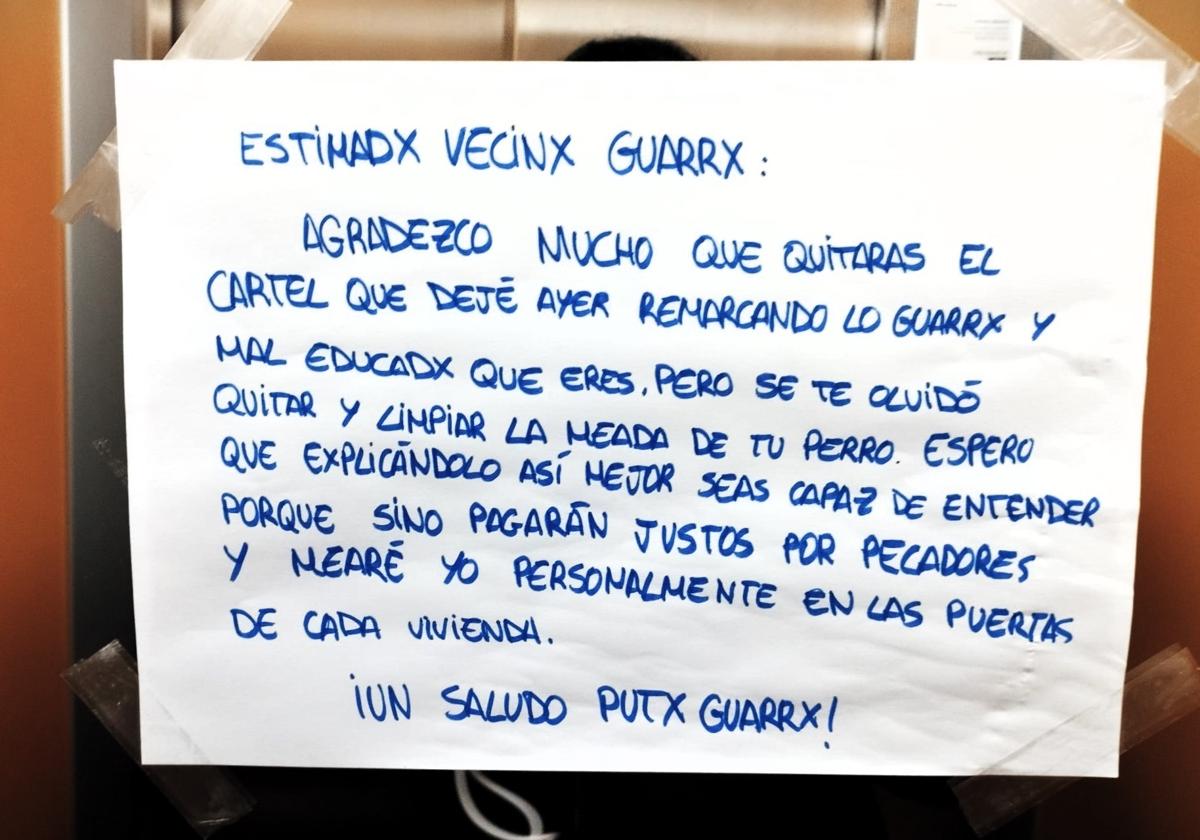 ESTIMADX VECINX GUARRX:
AGRADEZCO MUCHO QUE QUITARAS EL
CARTEL QUE DEJÉ AYER REMARCANDO LO GUARRX Y
MAL EDUCADX QUE ERES, PERO SE TE OLVIDÓ
QUITAR Y LIMPIAR LA MEADA DE TU PERRO. ESPERO
QUE EXPLICÁNDOLO ASÍ MEJOR SEAS CAPAZ DE ENTENDER
PORQUE SINO PAGARÁN JUSTOS POR PECADORES
Y MEARÉ YO PERSONALMENTE EN LAS PUERTAS
DE CADA VIVIENDA.
¡UN SALUDO PUTX GUARRX!